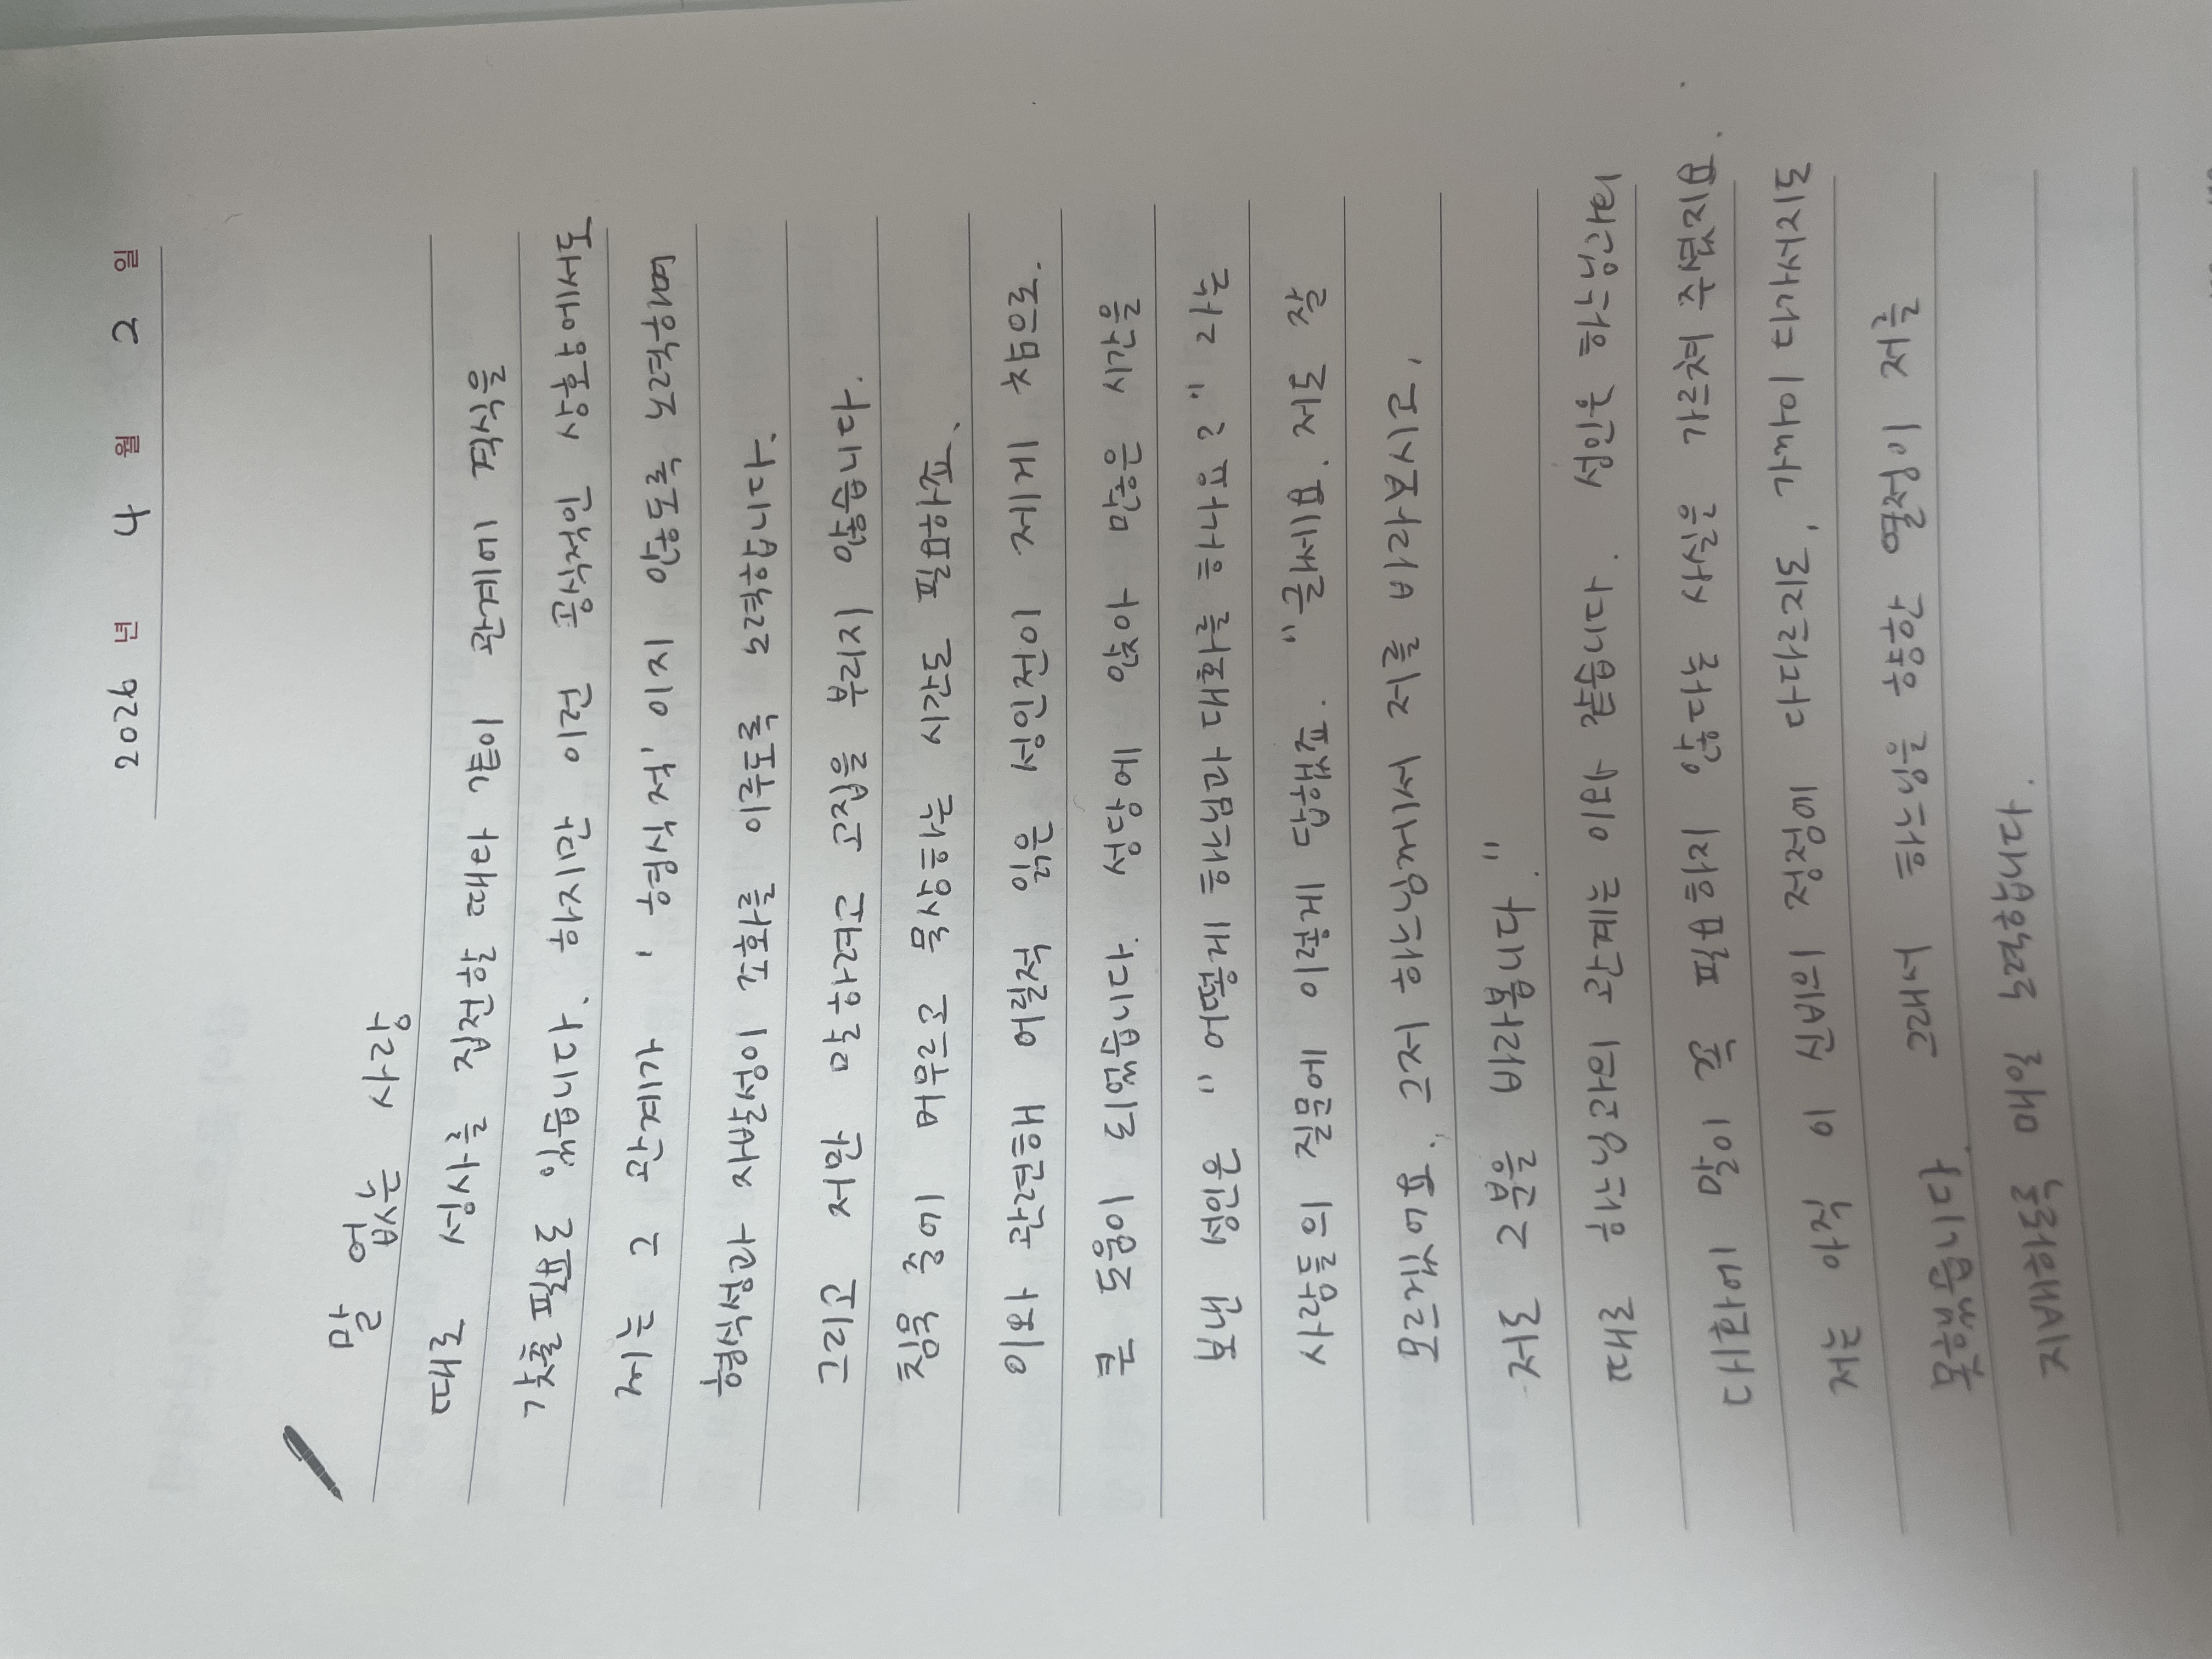 2026 년 4 월 2 일
말 없는 사랑
때로 성사를 집전할 때라 같이 관계에 격식을
갖출 필요도 있습니다. 하지만 이런 공식적인 상황에서도
제는 그 관계가 '형식적'이지 않도록 노력하며
형식성과 자발성이 조화를 이루도록 노력합니다.
그리고 저만 말하려고 고집을 부리지 않습니다.
침묵 중에 머무르고 묵상하는 시간도 필요하죠.
이와 관련해 어릴적 읽은 성인전이 제게 참으로.
큰 도움이 되었습니다. 성당에 앉아 많은 시간을
보낸 성인은 "어떻게 하느님과 대화를 하나요?" 라는
사람들의 질문에 이렇게 답했죠. "글쎄요. 저도 잘
모르겠어요. 그저 하느님께서 저를 바라보시고,
저도 그분을 바라봅니다."
때로 하느님과의 관계는 이와 같습니다. 성인은 하느님과의
대화에 말이 꼭 필요하지 않다는 사실을 가르쳐 주셨지요.
저는 아직 이 신비의 정점에 다다르지도, 가까이 다가서지도
못했습니다. 그래서 하느님을 향한 열정이 저를
지배하도록 매일 노력합니다.